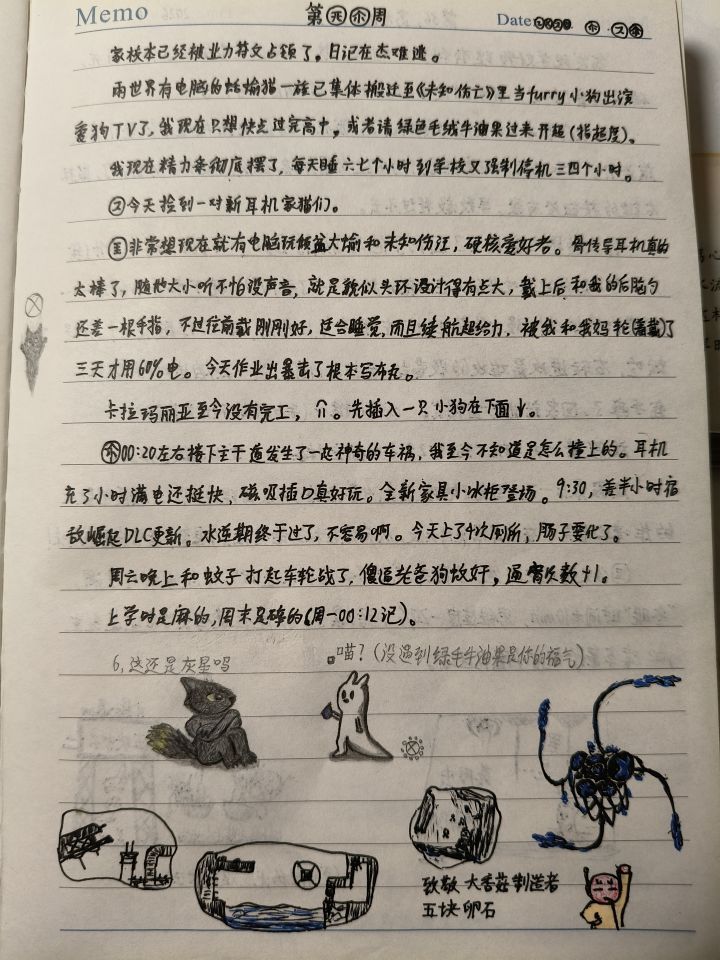 Memo 第 周 Date
家根本已经被业力符文占领了。日记在杰难逃。
雨世界有电脑的蛞蝓猫一族已集体搬迁至《未知伤亡》里当furry小狗出演
爱狗TV了,我现在只想快点过完高十,或者请绿色毛绒牛油果过来开超(指超度)。
我现在精力条彻底摆了,每天睡六七个小时到学校又强制停机三四个小时。
今天捡到一对新耳机家猫们。
非常想现在就有电脑玩倾盆大蝓和未知伤汪,硬核爱好者。骨传导耳机真的
太棒了,随他大小听不怕没声音,就是貌似头环设计得有点大,戴上后和我的后脑勺
还差一根手指,不过往前戴刚刚好,适合睡觉,而且续航超给力,被我和我妈轮(着戴)了
三天才用60%电。今天作业出暴击了根本写布丸。
卡拉玛丽亚至今没有完工,。先插入一只小狗在下面↓。
00:20左右楼下主干道发生了一起神奇的车祸,我至今不知道是怎么撞上的。耳机
充了小时满电还挺快,磁吸插口真好玩。全新家具小冰柜登场。9:30,差半小时宿
敌崛起DLC更新。水逆期终于过了,不容易啊。今天上了4次厕所,肠子要化了。
周六晚上和蚊子打起车轮战了,傻逼老爸狗蚊奸,逼臀次数+1。
上学时是麻的,周末是碎的(周一00:12记)。
6,这还是灰星吗
。喵?(没遇到绿毛牛油果是你的福气)
致敬 大香菇制造者
五块卵石